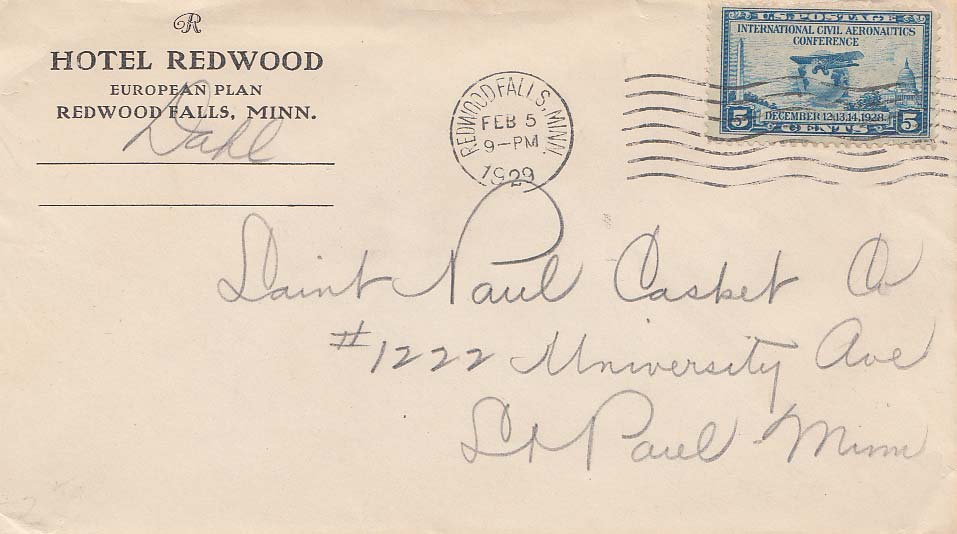 R
HOTEL REDWOOD
EUROPEAN PLAN
REDWOOD FALLS, MINN.
Dahl
REDWOOD FALLS, MINN.
FEB 5
9-PM
1929
U.S. POSTAGE
INTERNATIONAL CIVIL AERONAUTICS
CONFERENCE
5 DECEMBER 12.13.14.1928. 5
CENTS
Saint Paul Casket Co
#1222 University Ave
St Paul Minn